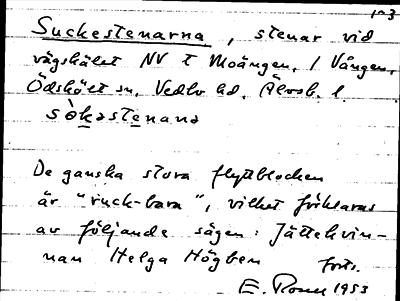 1-3
Suckestenarna, stenar vid
vägskälet NV t Moängen, / Vången,
Ödskölt sn, Vedbo hd, Älvsb. l.
sòkastenana
De ganska stora flyttblocken
är "ruck-bara", vilket förklaras
av följande sägen: Jättekvin-
nan Helga Högben forts.
E. 1953